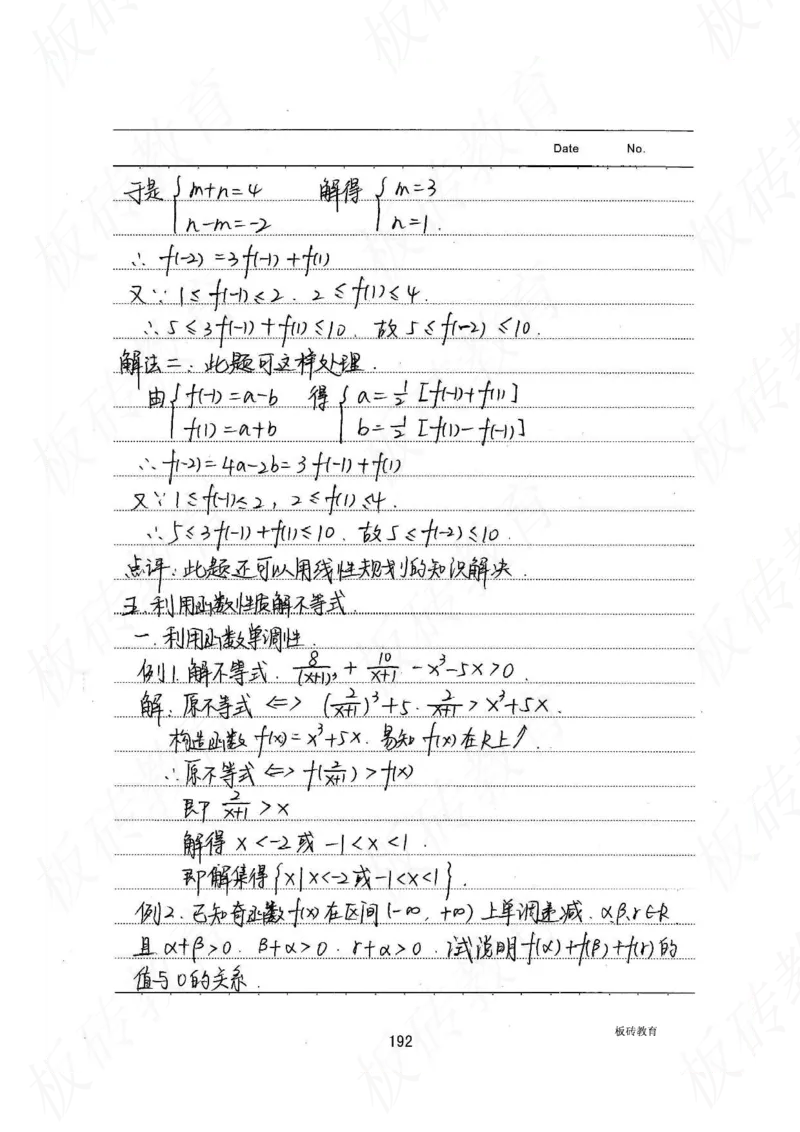 Date No.
于是 { m+n=4 解得 { m=3
n-m=-2 n=1.
∴ f(-2)=3f(-1)+f(1)
又∵ 1≤f(-1)≤2. 2≤f(1)≤4.
∴ 5≤3f(-1)+f(1)≤10. 故 5≤f(-2)≤10.
解法二: 此题可这样处理.
由 { f(-1)=a-b 得 { a=1/2[f(-1)+f(1)]
f(1)=a+b b=1/2[f(1)-f(-1)]
∴ f(-2)=4a-2b=3f(-1)+f(1)
又∵ 1≤f(-1)≤2, 2≤f(1)≤4.
∴ 5≤3f(-1)+f(1)≤10. 故 5≤f(-2)≤10.
点评: 此题还可以用线性规划的知识解决.
五. 利用函数性质解不等式.
一. 利用函数单调性.
例1. 解不等式. 8/(x+1)³ + 10/(x+1) - x³-5x>0.
解: 原不等式 <=> (2/(x+1))³+5·2/(x+1) > x³+5x.
构造函数 f(x)=x³+5x. 易知 f(x)在R上↑.
∴ 原不等式 <=> f(2/(x+1))>f(x)
即 2/(x+1) >x
解得 x<-2 或 -1<x<1.
即解集得{x|x<-2或-1<x<1}.
例2. 已知奇函数f(x)在区间(-∞, +∞)上单调递减. α,β,r∈R
且 α+β>0. β+α>0. r+α>0. 试说明f(α)+f(β)+f(r)的
值与0的关系.
192
板砖教育